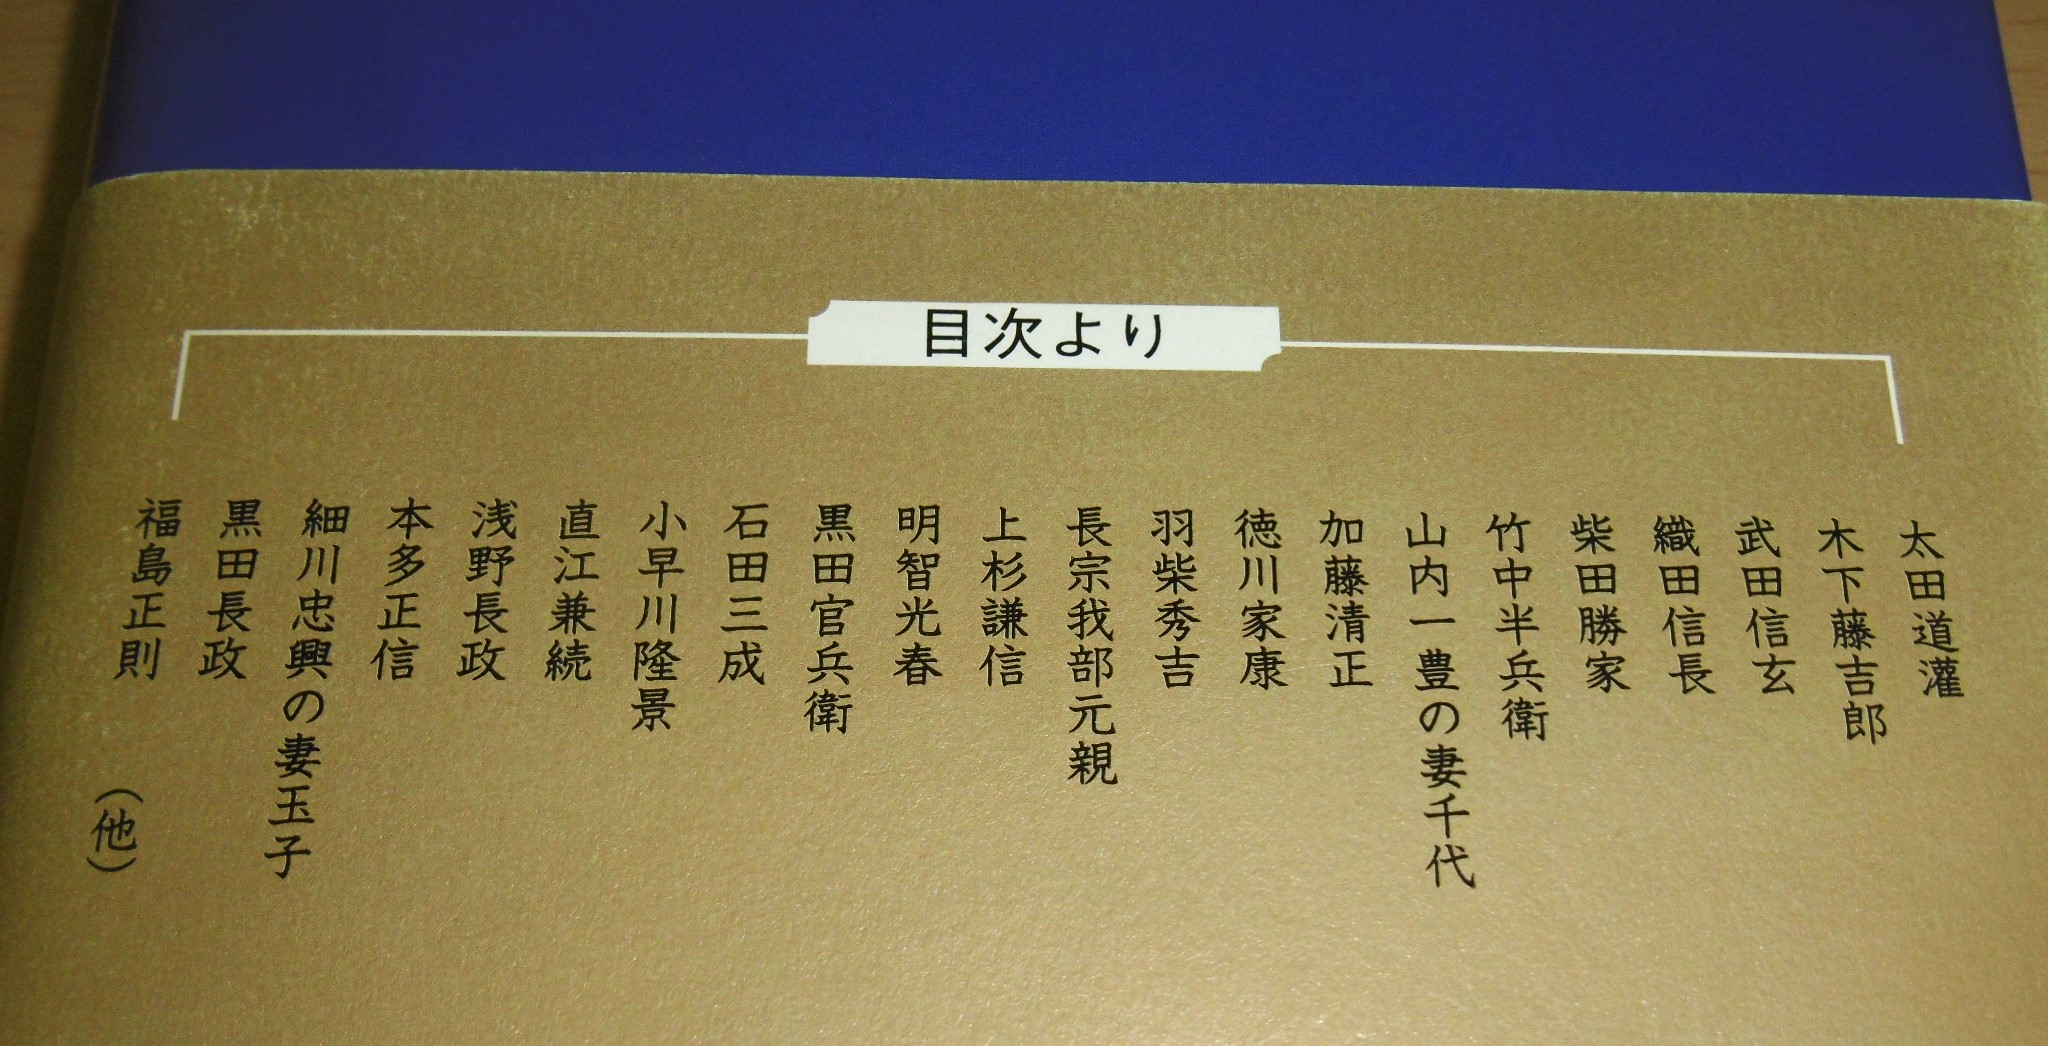 目次より
太田道灌
木下藤吉郎
武田信玄
織田信長
柴田勝家
竹中半兵衛
山内一豊の妻千代
加藤清正
徳川家康
羽柴秀吉
長宗我部元親
上杉謙信
明智光春
黒田官兵衛
石田三成
小早川隆景
直江兼続
浅野長政
本多正信
細川忠興の妻玉子
黒田長政
福島正則
（他）